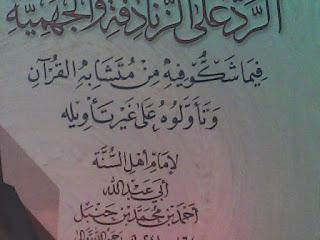 الرَّدُّ عَلَى الزَّنَادِقَةِ وَالْجَهْمِيَّةِ
فِيمَا شَكُّوا فِيهِ مِنْ مُتَشَابِهِ الْقُرْآنِ
وَتَأَوَّلُوهُ عَلَى غَيْرِ تَأْوِيلِهِ
لِإِمَامِ أَهْلِ السُّنَّةِ
أَبِي عَبْدِ اللَّهِ
أَحْمَدَ بْنِ مُحَمَّدِ بْنِ حَنْبَلٍ